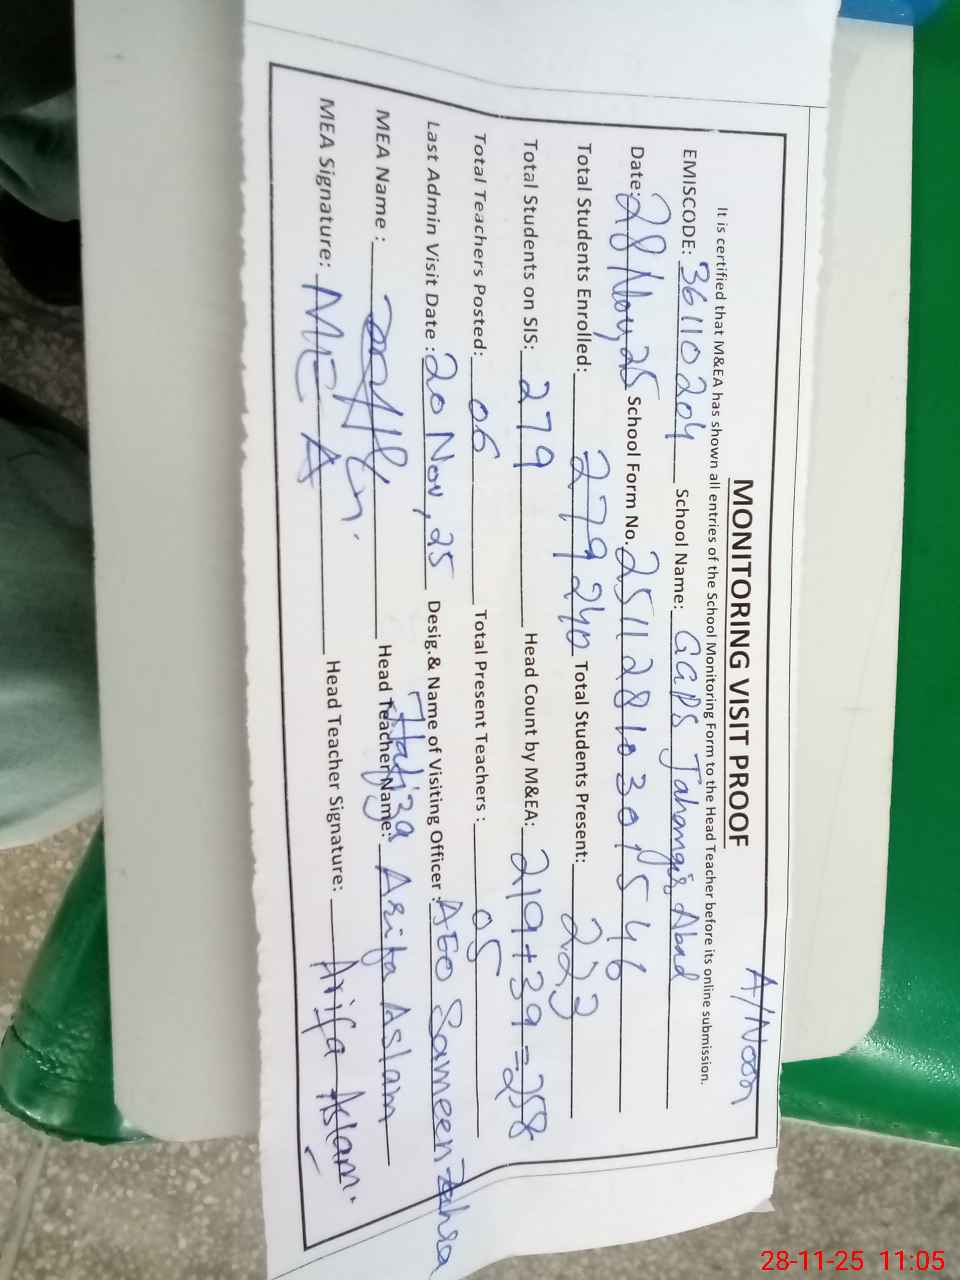 A/Noon
MONITORING VISIT PROOF
It is certified that M&EA has shown all entries of the School Monitoring Form to the Head Teacher before its online submission.
EMISCODE: 36110204 School Name: GGPS Jahangir Abad
Date: 28 Nov, 25 School Form No. 25112810301546
Total Students Enrolled: 279 240 Total Students Present: 223
Total Students on SIS: 279 Head Count by M&EA: 219+39=258
Total Teachers Posted: 06 Total Present Teachers : 05
Last Admin Visit Date : 20 Nov, 25 Desig.& Name of Visiting Officer : AEO Sameen Zahra
MEA Name : Head Teacher Name: Hafiza Arifa Aslam
MEA Signature: MEA Head Teacher Signature: Arifa Aslam.
28-11-25 11:05